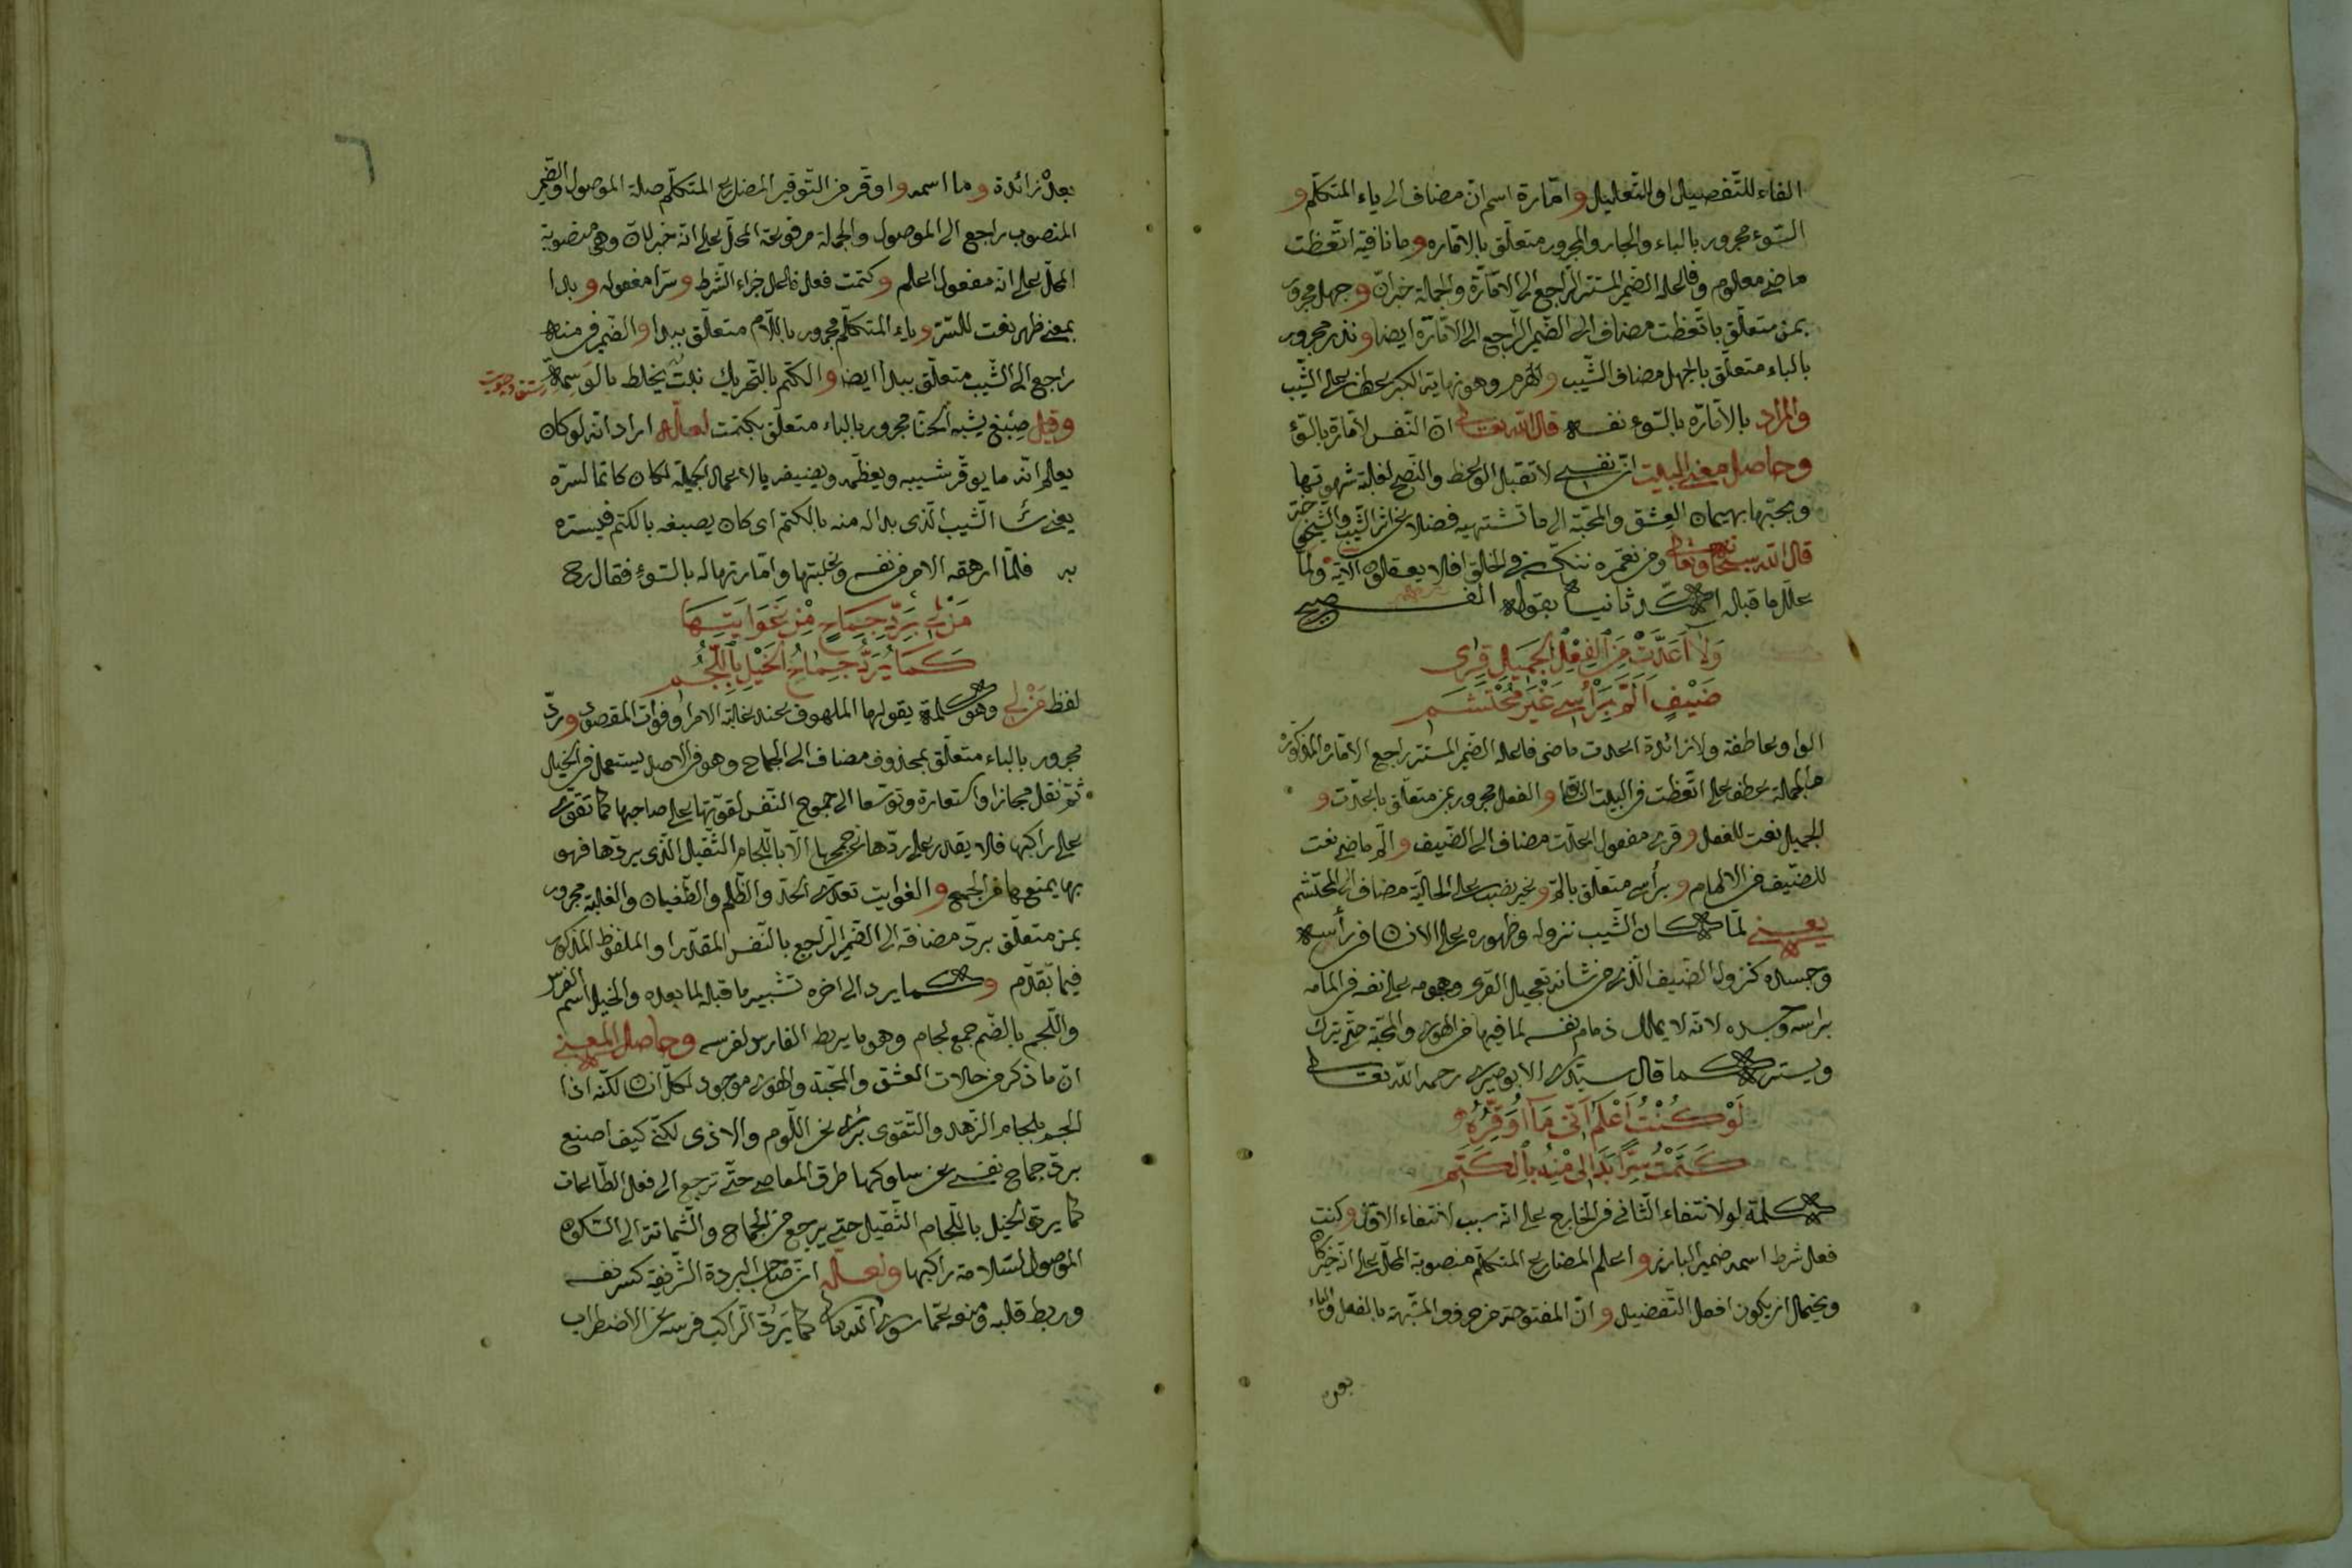 الفاء للتفصيل او للتعليل و امّارة اسم انّ مضاف الى ياء المتكلّم و
السّوء مجرور بالباء والجار والمجرور متعلّق بالامّاره و ما نافية اتّعظت
ماضى معلوم و فاعله الضّمير المستتر الرّاجع الى الامّارة والجملة خبر انّ و جهل مجرور
بمن متعلّق باتّعظت مضاف الى الضّمير الرّاجع الى الامّارة ايضا و نذير مجرور
بالباء متعلّق بالجهل مضاف الشّيب و الهرم وهو نهاية الكبر عطف على الشّيب
والمراد بالامّارة بالسّوء نفسه قال الله تعالى انّ النّفس لامّارة بالسّوء
وحاصل معنى البيت انّ نفسى لا تقبل الوعظ والنّصح لغلبة شهوتها
ومحبّتها بهيمان العشق والمحبّة الى ما تشتهيه فضلا عن اثر الشّيب والشّيخى حتّى
قال الله سبحانه وتعالى ومن نعمّره ننكّسه فى الخلق افلا يعقلون الآية ولمّا
علّل ما قبله اكّد ثانيا بقوله
وَلَا اَعَدَّتْ مِنَ الْفِعْلِ الْجَمِيلِ قِرٰى
ضَيْفٍ اَلَمَّ بِرَأْسِى غَيْرَ مُحْتَشَمِ
الواو عاطفة ولا زائدة اعدت ماضى فاعله الضّمير المستتر راجع الامّاره المذكورة
والجملة عطف على اتّعظت فى البيت السّابق و الفعل مجرور بمن متعلّق باعدّت و
الجميل نعت للفعل و قرى مفعول اعدّت مضاف الى الضّيف و المّ ماضى نعت
للضّيف من الالمام و برأسى متعلّق بالمّ و غير نصب على الحاليّة مضاف الى المحتشم
يعنى لمّا كان الشّيب نزوله وظهوره على الانسان فى رأسه
وجسده كنزول الضّيف الّذى من شانه تعجيل القرى وهو مه على نفسه فى المامه
براسه وجسده لانّه لا يملك زمام نفسه لما فيها من الهوى والمحبّة حتّى يترك
ويستر كما قال سيّدى الابوصيرى رحمه الله تعالى
لَوْ كُنْتُ اَعْلَمُ اَنِّى مَا اُوَقِّرُهُ
كَتَمْتُ سِرًّا بَدَا لِى مِنْهُ بِالْكَتَمِ
كلمة لو لانتفاء الثّانى فى الخارج على انّه سبب لانتفاء الاوّل و كنت
فعل شرط اسمه ضمير البارز و اعلم المضارع المتكلّم منصوبة المحلّ على انّه خبر كان
ويحتمل ان يكون افعل التّفضيل و انّ المفتوحة من حروف المشبّهة بالفعل والياء
بعده
٦
بعده زائدة و ما اسمه و اوقّر من التّوقير المضارع المتكلّم صلة الموصول والضّمير
المنصوب راجع الى الموصول والجملة مرفوعة المحلّ على انّه خبر لانّ وهى منصوبة
المحلّ على انّه مفعول اعلم و كتمت فعل فاعل جزاء الشّرط و سرّا مفعوله و بدا
بمعنى ظهر نعت للسّرّ و ياء المتكلّم مجرور باللّام متعلّق ببدا و الضّمير فى منه
راجع الى الشّيب متعلّق ببدا ايضا و الكتم بالتّحريك نبتٌ يخلط بالوَسِمة
وقيل صِبْغ يشبه الحنّا مجرور بالباء متعلّق بكتمت لعلّه اراد انّه لو كان
يعلم انّه ما يوقّر شيبه ويعظّمه ويضيفه بالاعمال الجميلة لكان كاتما لسرّه
يعنى الشّيب الّذى بدا له منه بالكتم اى كان يصبغه بالكتم فيستره
به فلمّا ارهقه الامر من نفسه وغلبتها وامّارتها له بالسّوء فقال رح
مَنْ لِى بِرَدِّ جِمَاحٍ مِنْ غَوَايَتِهَا
كَمَا يُرَدُّ جِمَاحُ الْخَيْلِ بِاللُّجُمِ
لفظ مَنْ لِى وهو كلمة يقولها الملهوف عند غلبة الامر او فوات المقصود و ردّ
مجرور بالباء متعلّق بمحذوف مضاف الى الجماح وهو فى الاصل يستعمل فى الخيل
ثمّ نقل مجازا واستعارة وتوسّعا الى جموح النّفس لقوّتها على صاحبها كما تقوى
على راكبها فلا يقدر على ردّها عن جمحها الّا باللّجام الثّقيل الّذى يردّها فهو
بها يمنع بها من الجمح و الغوايت تعدّى الحدّ والظّلم والطّغيان والغلبة مجرور
بمن متعلّق بردّ مضافة الى الضّمير الرّاجع بالنّفس المقدّر او الملفوظ المذكور
فيما تقدّم و كما يرد الى اخره تشبيه ما قبله لما بعده والخيل اسم الفرس
واللّجم بالضّم جمع لجام وهو ما يربط الفارس لفرسه وحاصل المعنى
انّ ما ذكر من حالات العشق والمحبّة والهوى موجود لكلّ انسان لكنّه اذا
الجم بلجام الزّهد والتّقوى برئ عن اللّوم والاذى لكنّى كيف اصنع
بردّ جماح نفسى عن سلوكها طرق المعاصى حتّى ترجع الى فعل الطّاعات
كما يردّ الخيل باللّجام الثّقيل حتى يرجع من الجماح والشّماتة الى السّكون
الموصول لسلامة راكبها ولعلّه انّ صاحب البردة الشّريفة كسر نفسه
وربط قلبه ومنعه عمّا سوى الله تعالى كما يَردّ الرّاكب فرسه عن الاضطراب